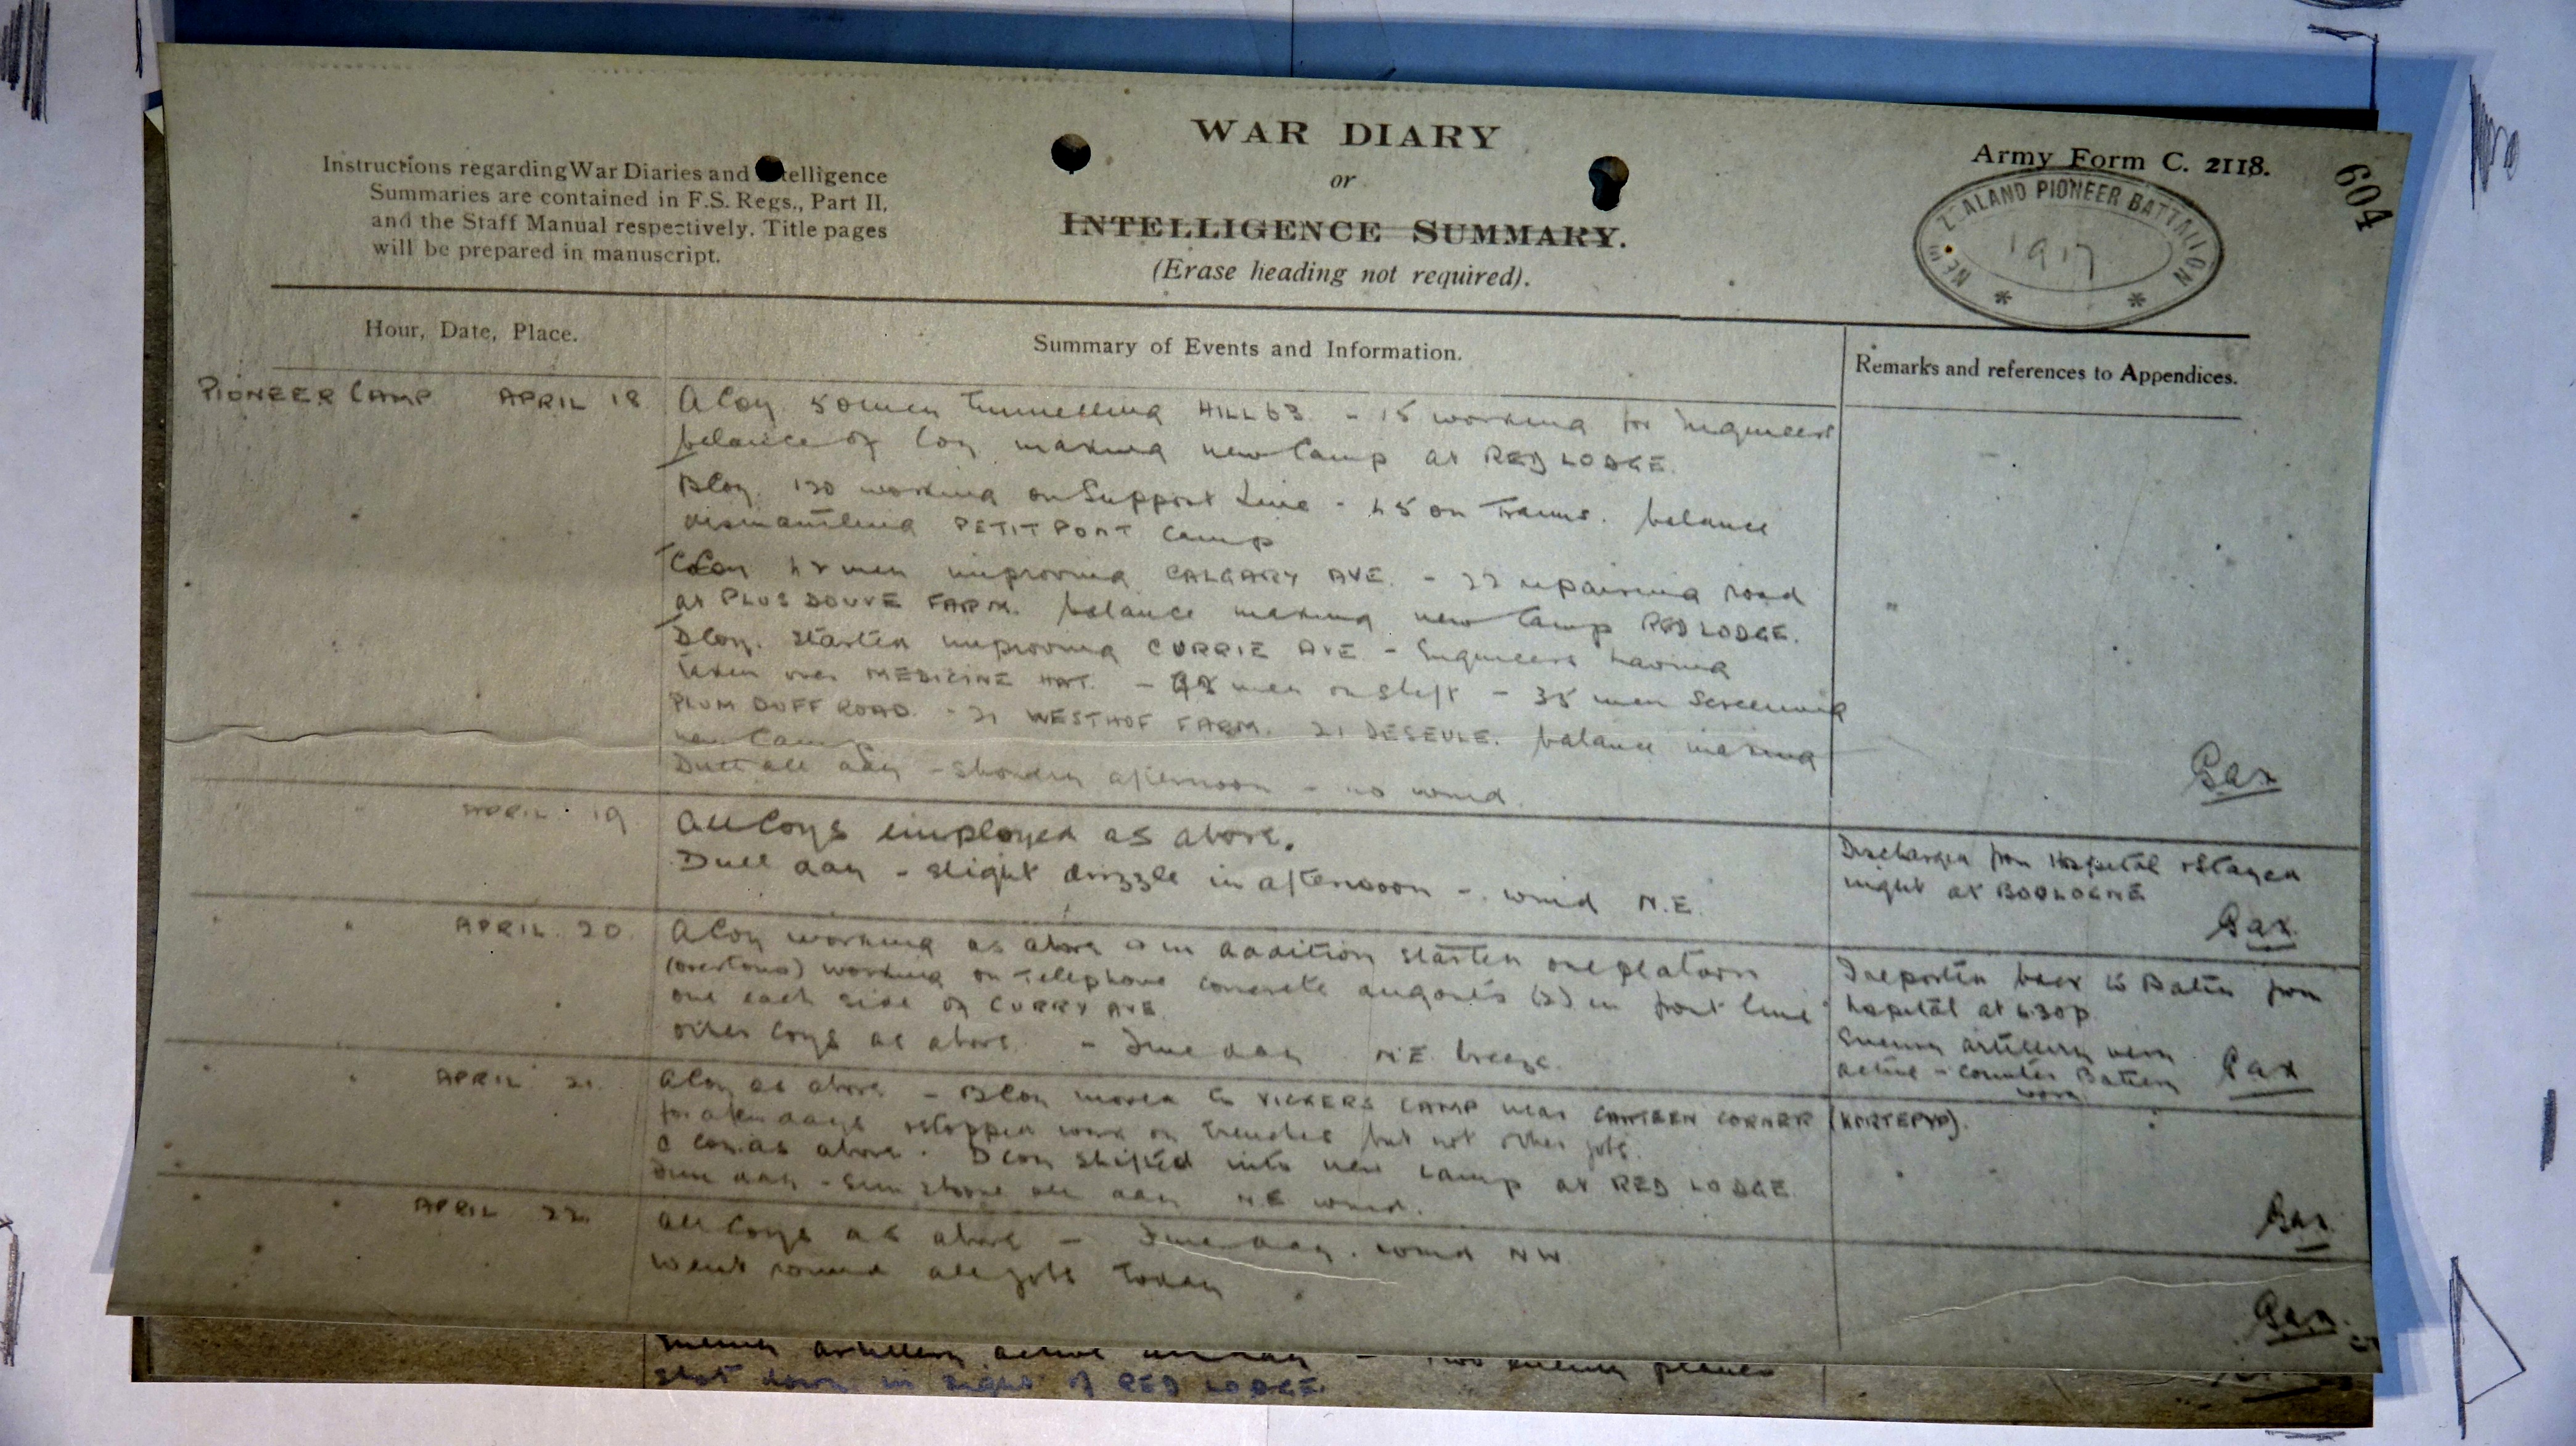 WAR DIARY
or
INTELLIGENCE SUMMARY.
(Erase heading not required).
Instructions regarding War Diaries and Intelligence
Summaries are contained in F.S. Regs., Part II,
and the Staff Manual respectively. Title pages
will be prepared in manuscript.
Army Form C. 2118.
604
NEW ZEALAND PIONEER BATTALION
1917
Hour, Date, Place.
Summary of Events and Information.
Remarks and references to Appendices.
PIONEER CAMP APRIL 18
A Coy 50 men Tunnelling HILL 63 - 15 working for Engineers
balance of Coy making new Camp at RED LODGE.
B Coy. 120 working on Support Line - 45 on Trams. balance
dismantling PETIT PONT Camp
C Coy men improving CALGARY AVE. - 22 repairing road
at PLUS DOUVE FARM. balance making new Camp RED LODGE.
D Coy. started improving CURRIE AVE - Engineers having
taken over MEDICINE HAT. - men on shift - 35 men Screening
PLUM DUFF ROAD. - 21 WESTHOF FARM. 21 DESEULE. balance making
new Camp
Dull all day - showery afternoon - no wind.
" " APRIL 19
All Coys employed as above.
Dull day - slight drizzle in afternoon - wind N.E.
Discharged from Hospital & stayed
night at BOULOGNE
" " APRIL 20.
A Coy working as above & in addition started one platoon
working on Telephone concrete dugouts (2) in front line
one each side of CURRY AVE.
other Coys as above - Fine day N.E. breeze.
I reported back to Battn from
hospital at 4.30p.
Enemy artillery very
active - counter Battery
work
" " APRIL 21.
A Coy as above - B Coy moved to VICKERS CAMP near CANTEEN CORNER (KORTEPYP).
for a few days & stopped work on trenches but not other jobs.
C Coy as above. D Coy shifted into new camp at RED LODGE
Fine day - sun shone all day N.E wind.
" " APRIL 22.
All Coys as above - Fine day. wind NW.
Went round all jobs today
Enemy artillery active - Two enemy planes
shot down in sight of RED LODGE.